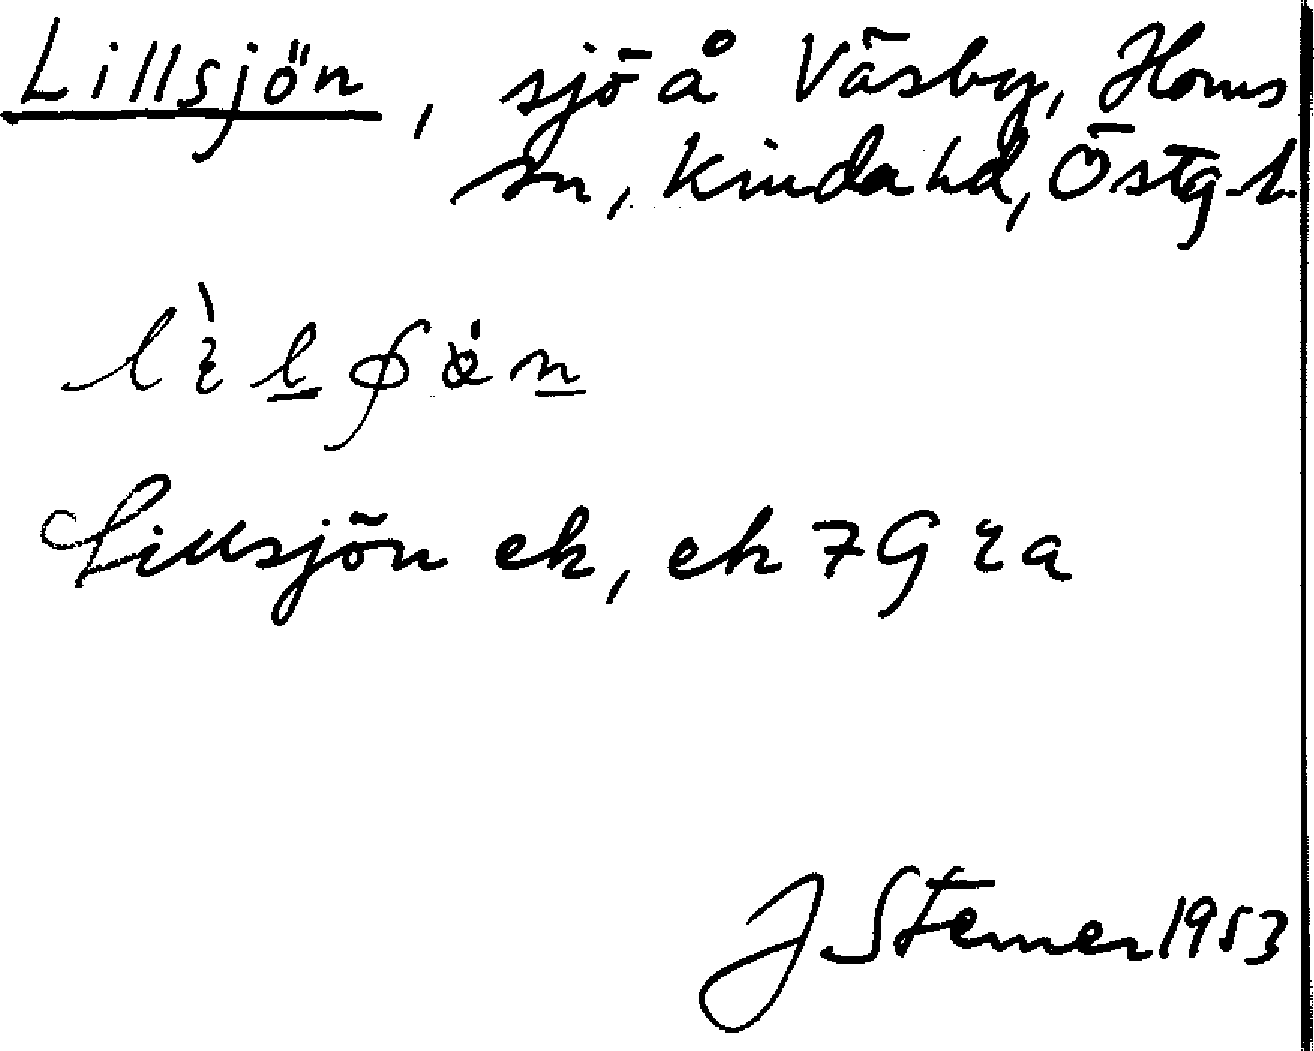 Lillsjön, sjö å Väsby, Horns
sn, Kinda hd, Östg.l.
Lillsjön ek, ek 7G 2a
J Sterner 1953